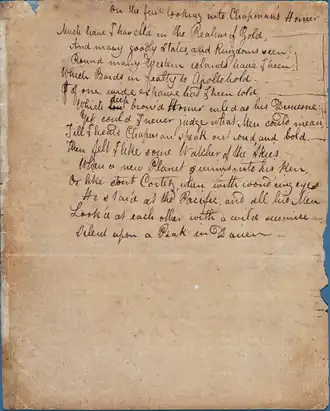 On the first looking into Chapman's Homer
Much have I travell'd in the Realms of Gold,
And many goodly States and Kingdoms seen;
Round many Western islands have I been,
Which Bards in fealty to Apollo hold.
Of one wide expanse had I been told,
Which deep brow'd Homer ruled as his Demesne:
Yet could I never judge what Men could mean,
Till I heard Chapman speak out loud and bold.
Then felt I like some Watcher of the Skies
When a new Planet swims into his Ken,
Or like stout Cortez, when with wond'ring eyes
He star'd at the Pacific, and all his Men
Look'd at each other with a wild surmise
Silent upon a Peak in Darien